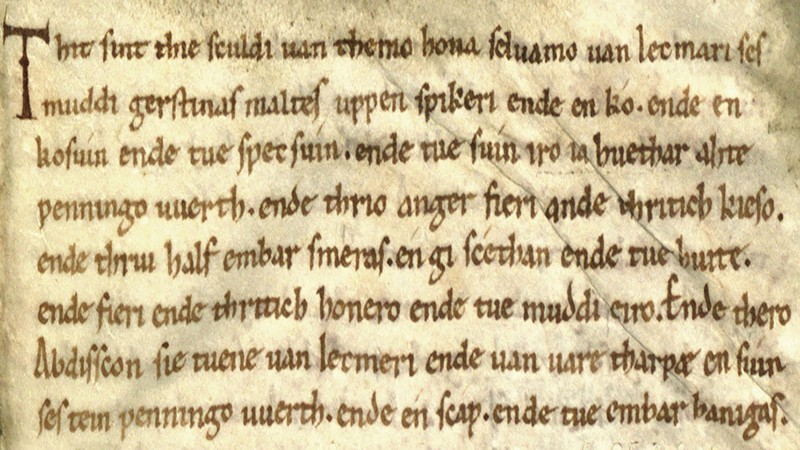 Thit sint thie sculdi uan themo houa seluamo uan lecmari ses
muddi gerstinas maltes uppen spikeri ende en ko. ende en
kosuin ende tue spetsuin. ende tue suin iro ia huethar ahte
penningo uuerth. ende thrio anger fieri ande thritich kieso.
ende thriu half embar smeras. en gi scethan ende tue hutte.
ende fieri ende thritich honero ende tue muddi eiro. Ende thero
Abdisscon sie tuene uan lecmeri ende uan uare tharpæ en suin
ses tein penningo uuerth. ende en scap. ende tue embar hanigas.